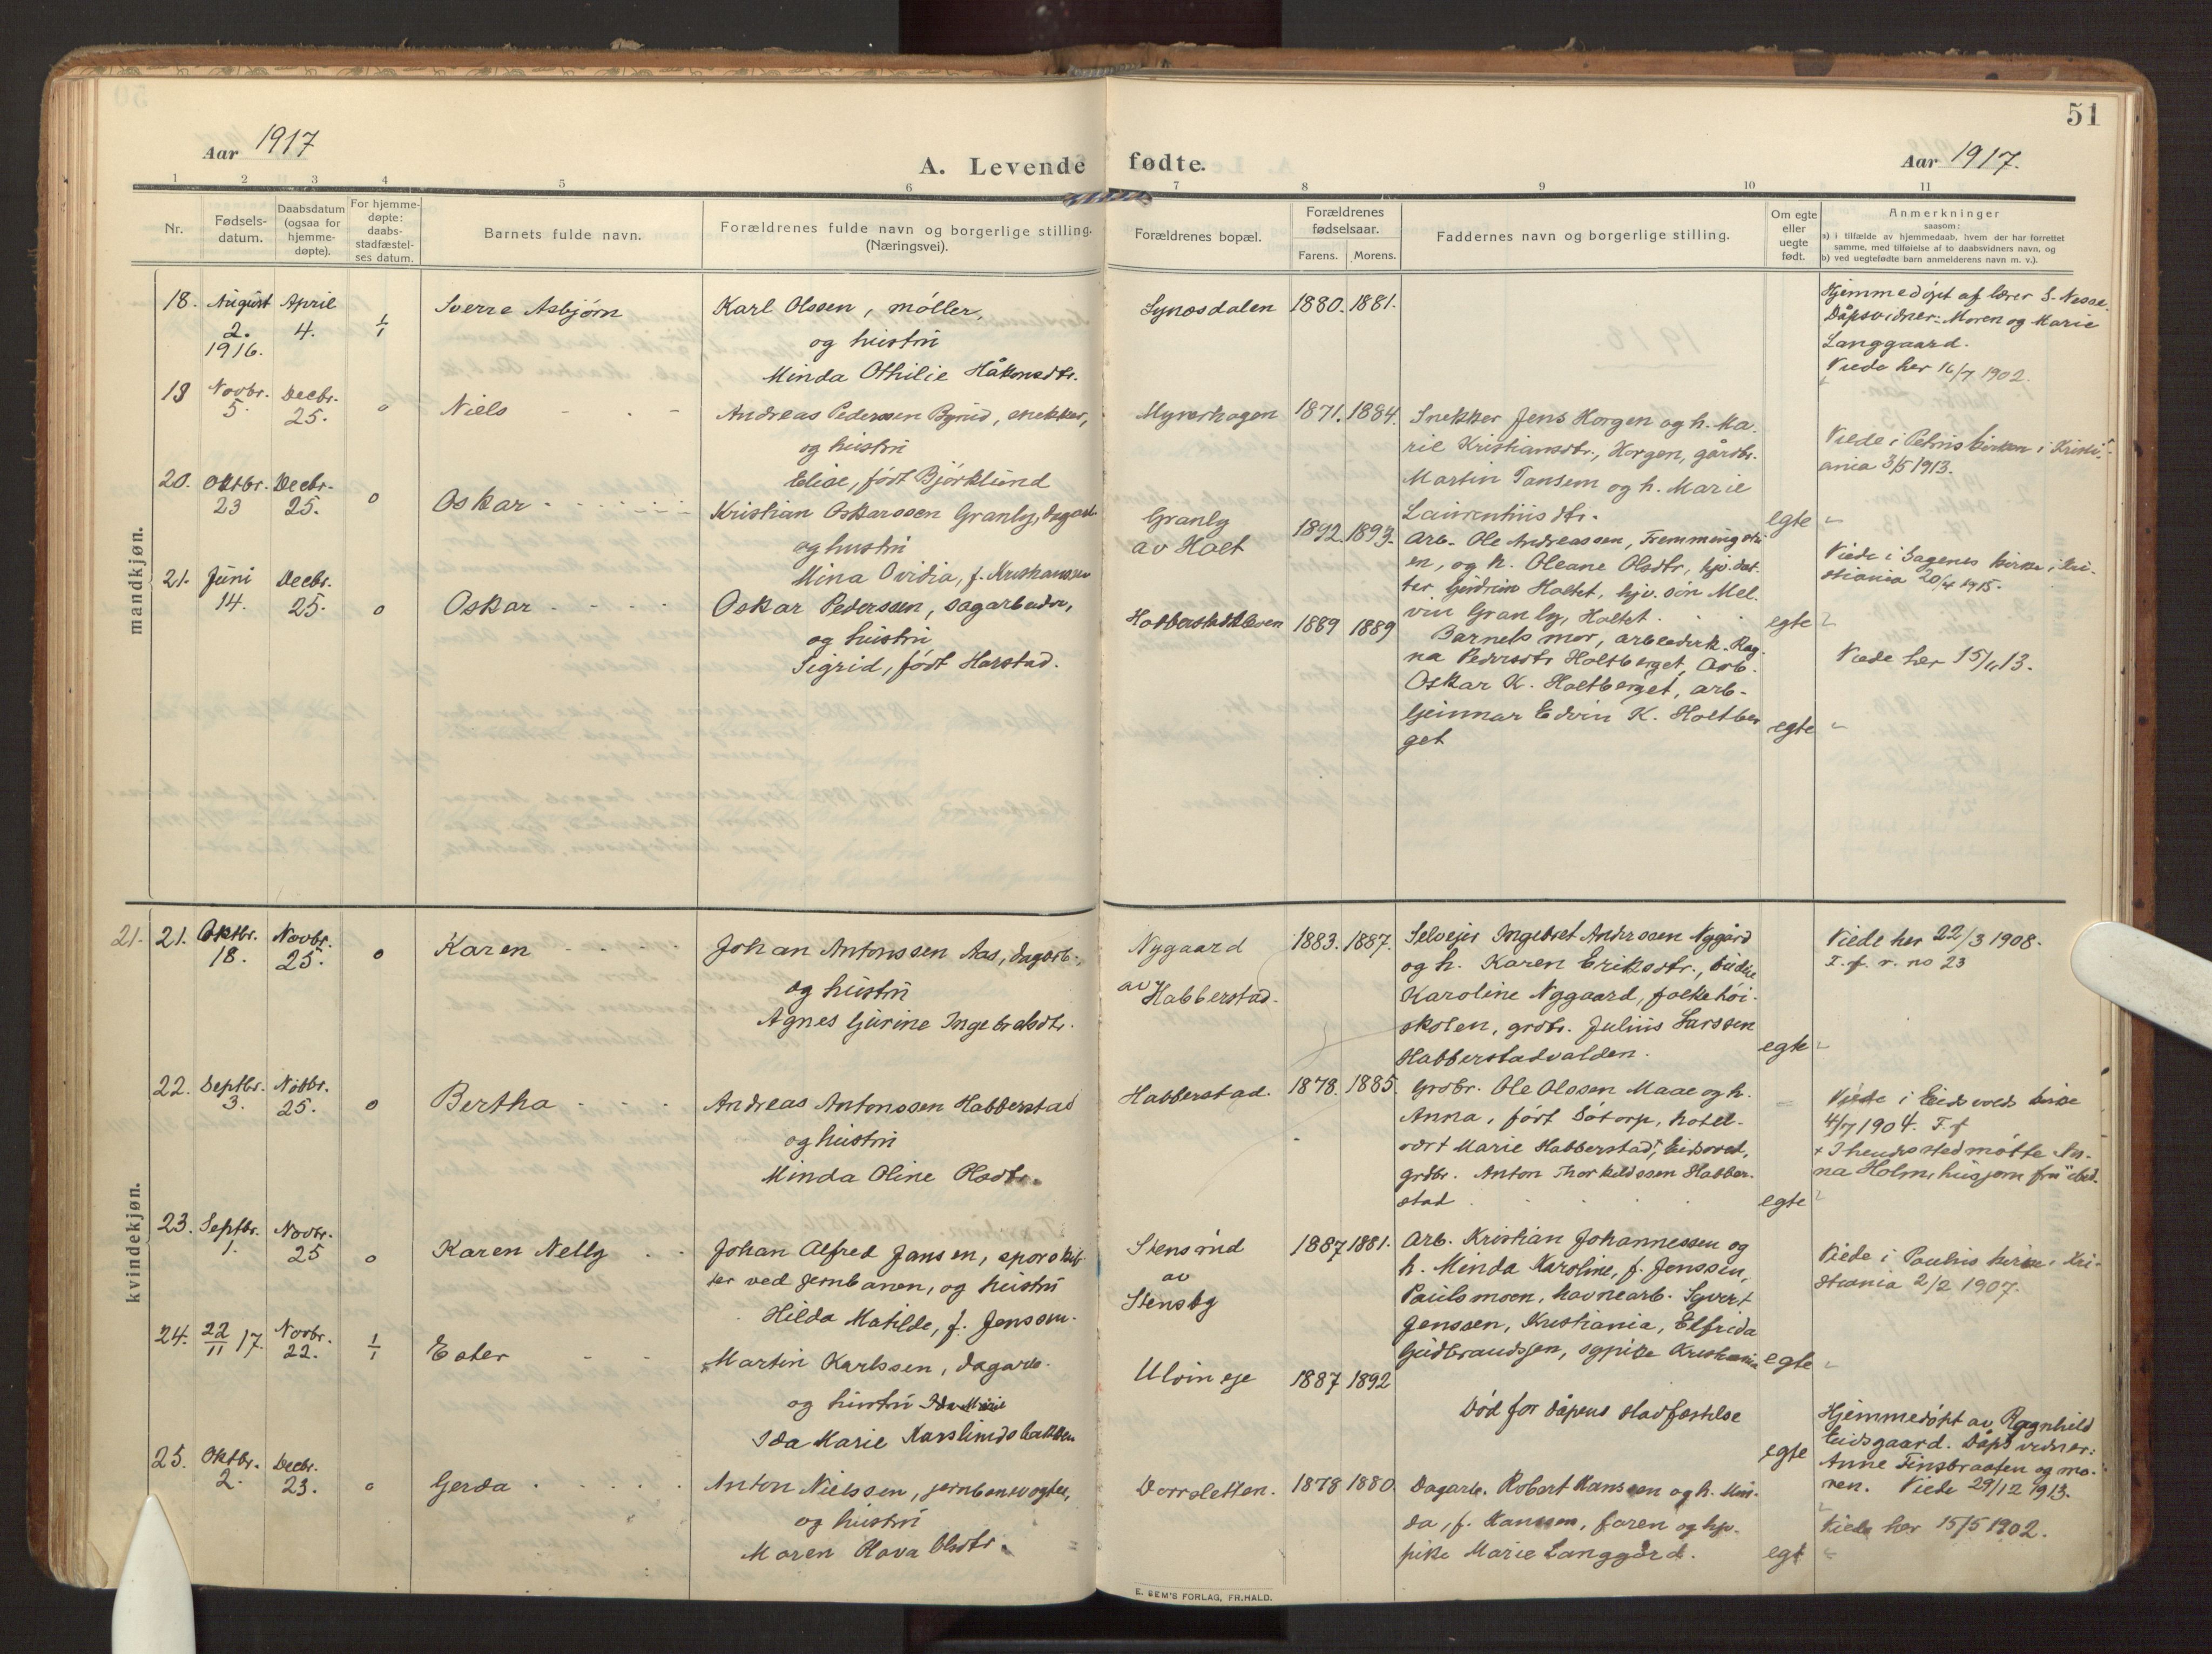 51
Aar 1917
A. Levende fødte.
Aar 1917.
1 2 3 4 5 6 7 8 9 10 11
Nr.
Fødsels-
datum.
Daabsdatum
(ogsaa for
hjemme-
døpte).
For hjemme-
døpte:
daabs-
stadfæstel-
ses datum.
Barnets fulde navn.
Forældrenes fulde navn og borgerlige stilling.
(Næringsvei).
Forældrenes bopæl.
Forældrenes
fødselsaar.
Farens. Morens.
Faddernes navn og borgerlige stilling.
Om egte
eller
uegte
født.
Anmerkninger
saasom:
a) i tilfælde av hjemmedaab, hvem der har forrettet
samme, med tilføielse af to daabsvidners navn, og
b) ved uegtefødte barn anmelderens navn m. v.).
mandkjøn.
18. August
2.
1916.
April
4.
1/1
Sverre Asbjørn
Karl Olssen, møller,
og hustru
Minda Othilie Håkonsdtr.
Synosdalen
1880. 1881.
Hjemmedøpt af lærer S.
Dåpsvidner: Moren og Marie
Langgaard.
Viede her 16/7 1902.
19 Novbr.
5.
Decbr.
25.
o
Niels
Andreas Pederssen Byrud, snekker,
og hustru
Elise, født Björklund
Myrerhagen
1871. 1884.
Snekker Jens Horgen og h. Ma-
ril Kristiansdtr., Horgen, gårdbr.
Martin Tansem og h. Marie
Laurentiusdtr.
egte
Viede i Petrus kirken i Kristi-
ania 3/5 1913.
20. Oktbr.
23
Decbr.
25.
o
Oskar
Kristian Oskarssen Granly, dagarb.
og hustru
Mina Ovidia, f. Kristianssen
Granly
av Holt
1892. 1893.
Arb. Ole Andreassen, Fremmingstu-
en, og h. Oleane Olsdtr., hjv. dat-
ter Gudrun Holtet, hjv. søn Mel-
vin Granly, Holtet.
egte
Viede i Sagenes kirke i Kri-
stiania 20/4 1915.
21. Juni
14.
Decbr.
25.
o
Oskar
Oskar Pederssen, sagarbeider,
og hustru
Sigrid, født Harstad.
1889 1889
Barnets mor, arbeiderk. Rag-
na Pedersdtr Holtberget, Arb.
Oskar K. Holtberget, arb.
Gunnar Edvin K. Holtber
get
egte
Viede her 15/11 13.
kvindekjøn.
21. 21. Oktbr.
18.
Novbr.
25.
o
Karen
Johan Antonssen Aas, dagarb.,
og hustru
Agnes Gurine Ingebretsdtr.
Nygaard
av
Habberstad.
1883. 1887.
Selveier Ingebret Anderssen Nygård
og h. Karen Eriksdtr., budeie
Karoline Nygaard, folkehøi-
skolen, grdbr. Julius Larssen
Habberstadvalden.
egte
Viede her 22/3 1908.
T. f. r. no 23
22. Septbr.
3.
Novbr.
25.
o
Bertha
Andreas Antonssen Habberstad
og hustru
Minda Oline Olsdtr.
Habberstad.
1878. 1885.
Grdbr. Ole Olssen Maae og h.
Anna, født Dotorp, hotel-
vært Marie Habberstad+, Eidsvold,
grdbr. Anton Thorkildssen Habber-
stad
egte
Viede i Eidsvolds kirke
4/7 1904. T. f
+ I hendes sted møtte An-
na Holm, husjom fru ibid.
23. Septbr.
1.
Novbr.
25
o
Karen Nelly
Johan Alfred Jansen, sporskif-
ter ved jernbanen, og hustru
Hilda Matilde, f. Jenssen.
Stensrud
av
Stensby
1887 1881.
Arb. Kristian Johannessen og
h. Minda Karoline, f. Jenssen,
Paulsmoen, havnearb. Syvert
Jenssen, Kristiania, Elfrida
Gudbrandssen, sypike Kristiania
egte
Viede i Paulus kirke, Kri-
stiania 2/2 1907.
24. 22/11 17.
Novbr.
22.
1/1
Ester
Martin Karlssen, dagarb.
og hustru
Ida Marie Karslundsbakken
Ulvin eje
1887 1892
Død for dåpens stadfæstelse
egte
Hjemmedøpt av Ragnhild
Eidsgaard. Dåpsvidner:
Anne Finsbraaten og mo-
ren. Viede 29/12 1913.
25. Oktbr.
2.
Decbr.
23.
o
Gerda
Anton Nielssen, jernbanevogter,
og hustru
Maren Olava Olsdtr.
Dorrsletten.
1878 1880.
Dagarb. Robert Hanssen og h. Min-
da, f. Hanssen, faren og hjv.
pike Marie Langgård.
egt
Viede her 15/5 1902.
E. SEM'S FORLAG, FR.HALD.